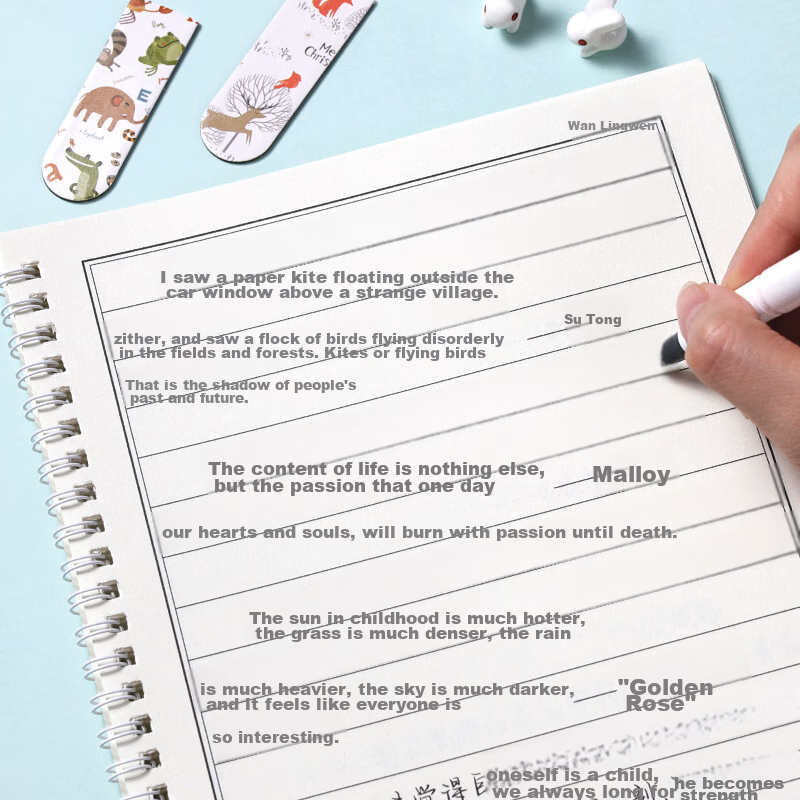 Me
Chris
E
elephant
Wan Lingwen
I saw a paper kite floating outside the
car window above a strange village.
Su Tong
zither, and saw a flock of birds flying disorderly
in the fields and forests. Kites or flying birds
That is the shadow of people's
past and future.
The content of life is nothing else,
but the passion that one day
Malloy
our hearts and souls, will burn with passion until death.
The sun in childhood is much hotter,
the grass is much denser, the rain
is much heavier, the sky is much darker,
and it feels like everyone is
"Golden
Rose"
so interesting.
oneself is a child,
we always long for
he becomes
strength